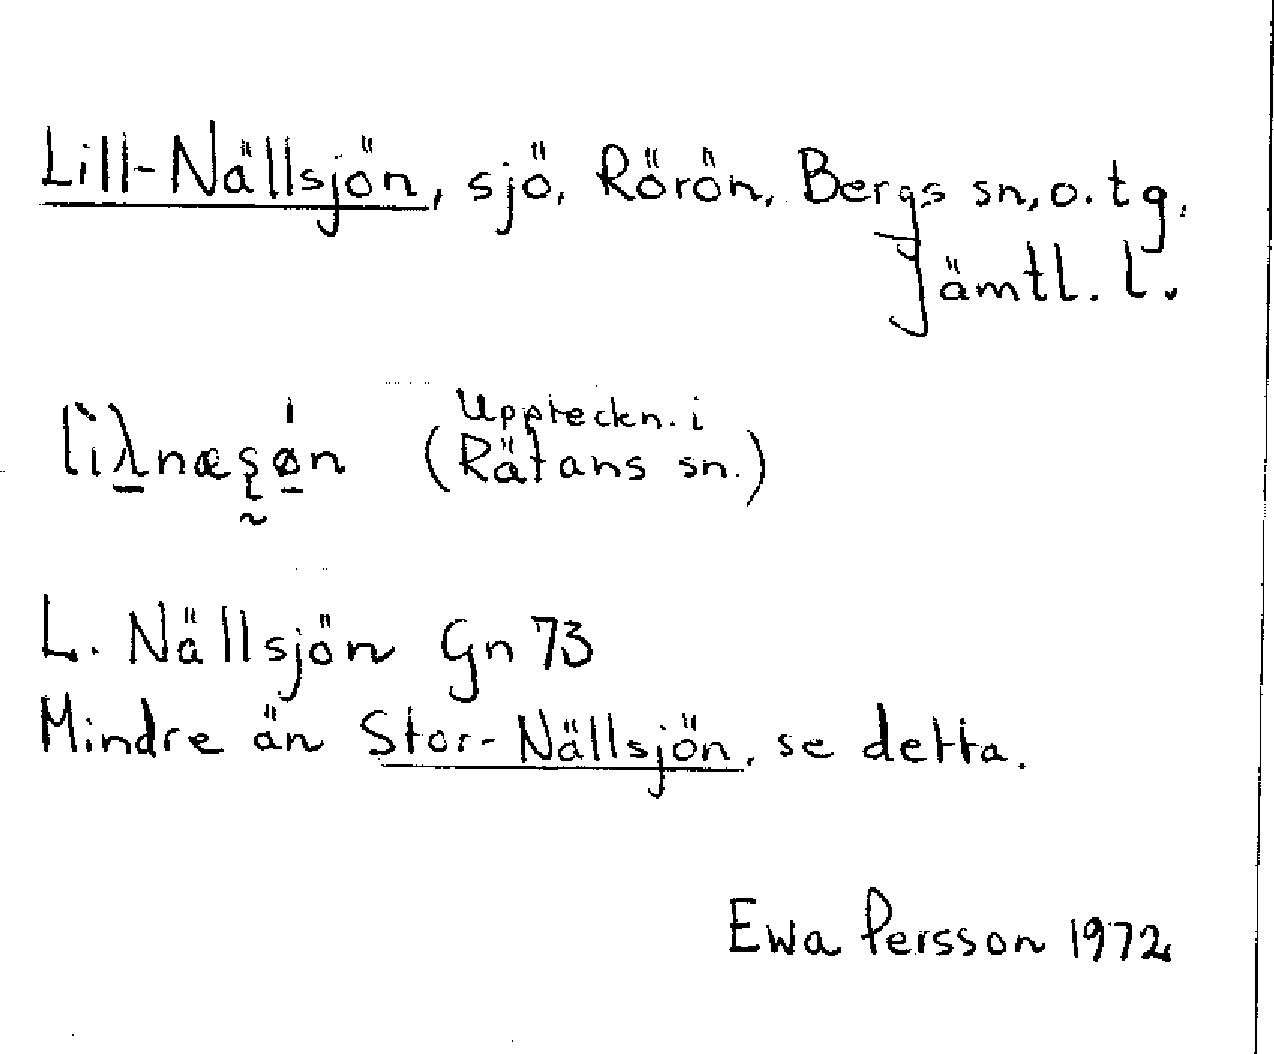 Lill-Nällsjön, sjö, Rörön, Bergs sn, o. tg.
Jämtl. l.
(Uppteckn. i
Rätans sn.)
L. Nällsjön Gn 73
Mindre än Stor-Nällsjön, se detta.
Ewa Persson 1972